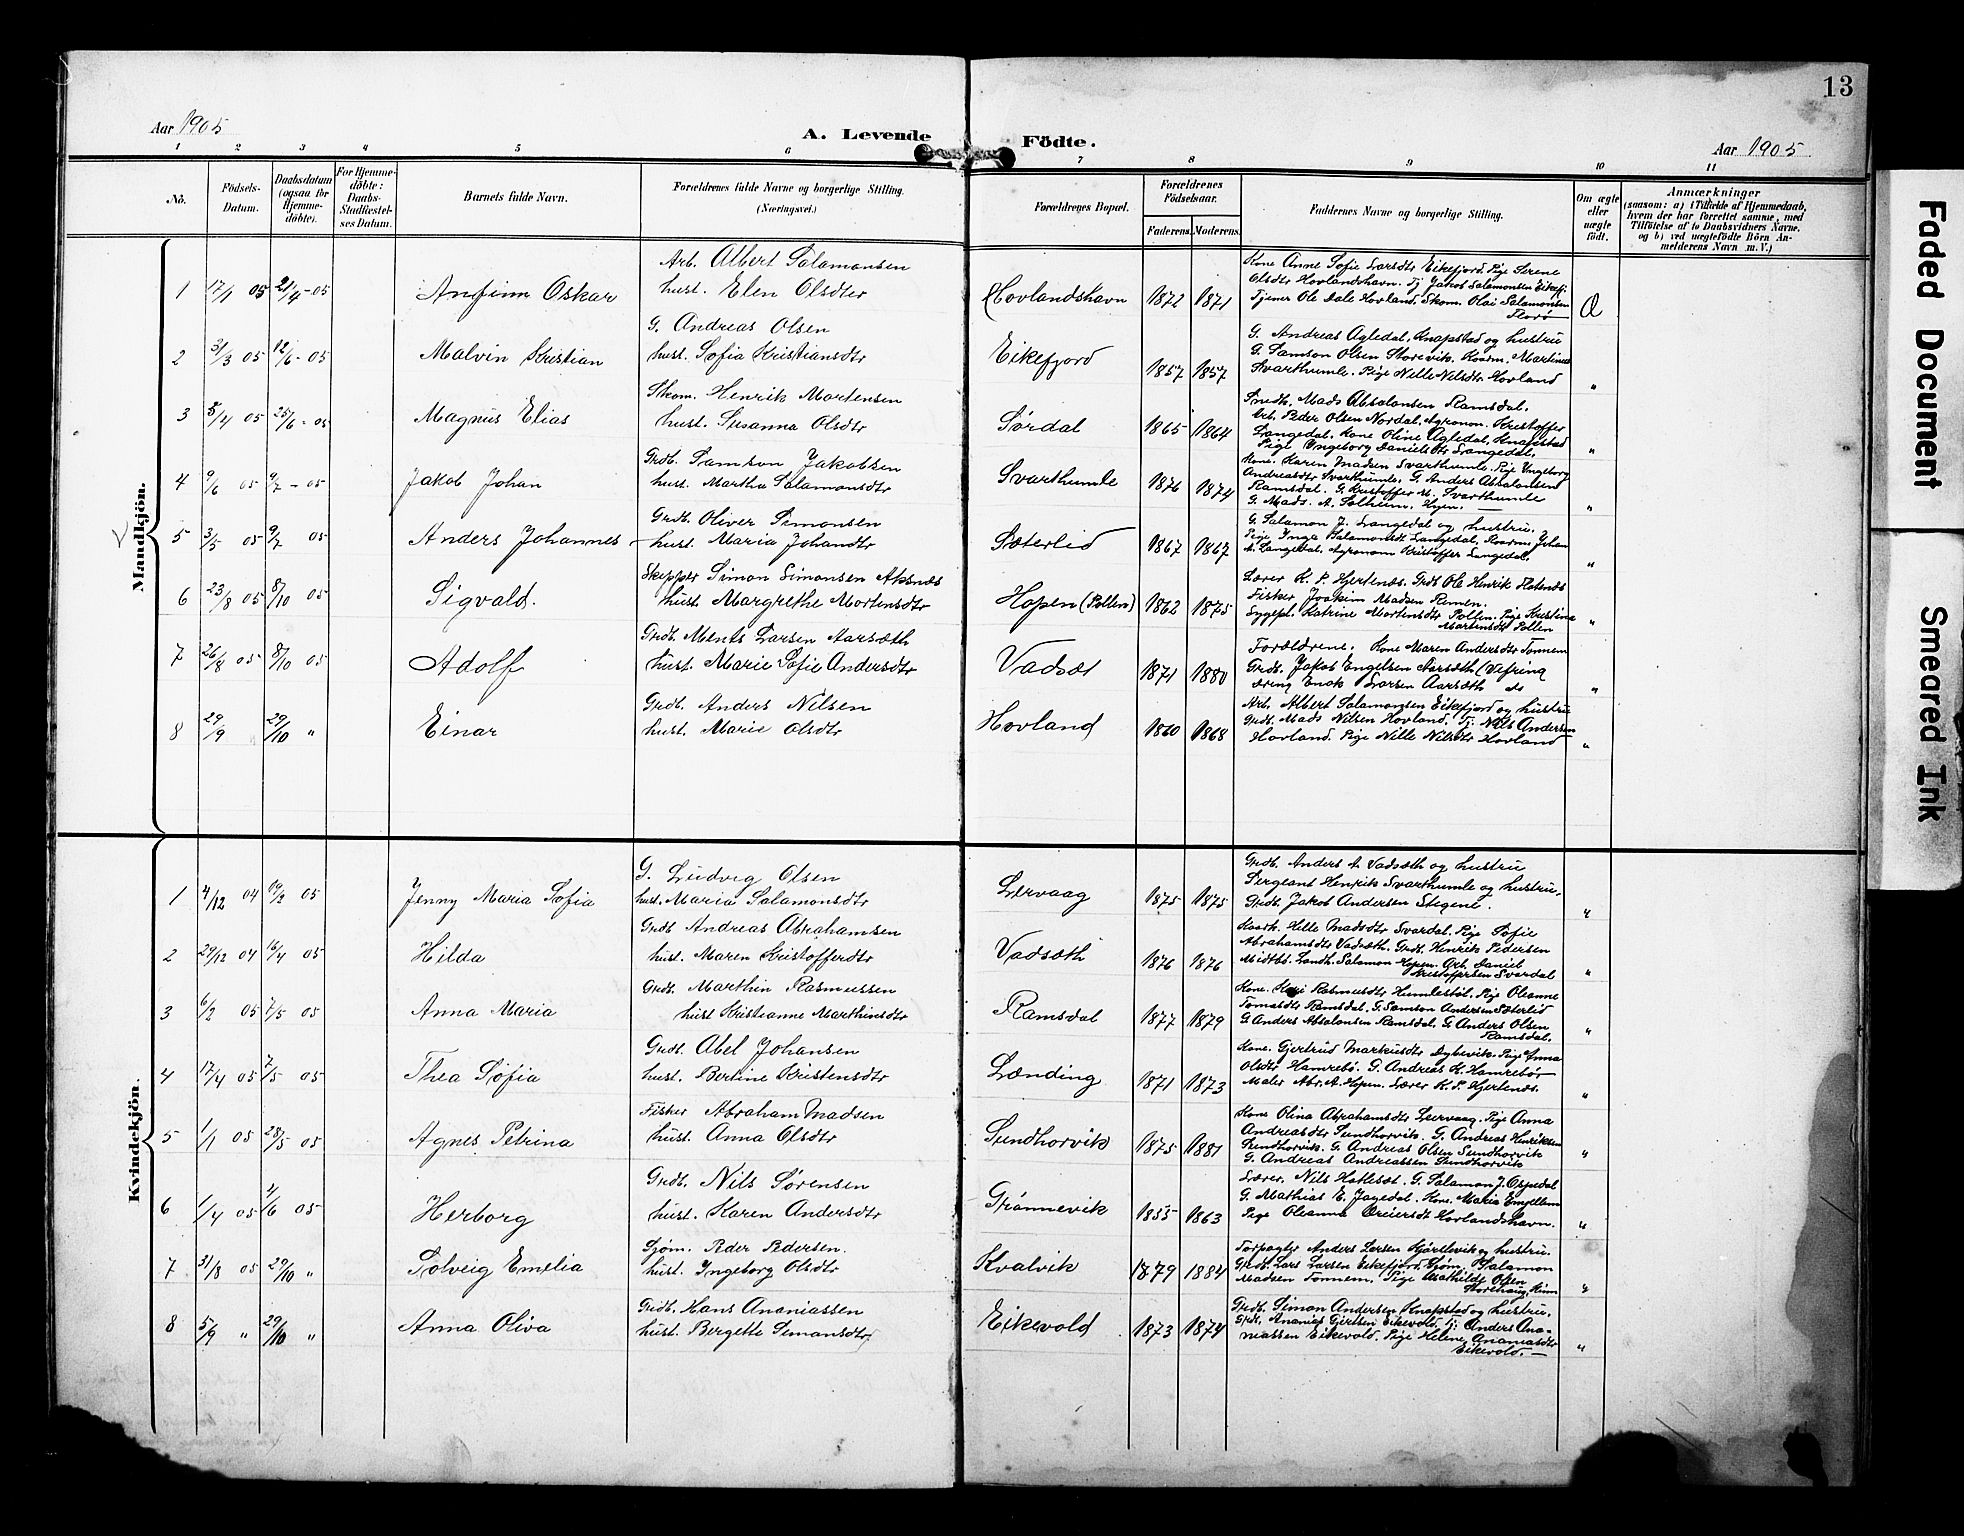 13
Aar 1905
A. Levende Födte.
Aar 1905
1 2 3 4 5 6 7 8 9 10 11
No.
Födsels-Datum.
Daabsdatum (ogsaa for Hjemme-döbte).
For Hjemme-döbte: Daabs-Stadfæstel-ses Datum.
Barnets fulde Navn.
Forældrenes fulde Navne og borgerlige Stilling. (Næringsvei.)
Forældrenes Bopæl.
Forældrenes Födselsaar.
Faderens. Moderens.
Faddernes Navne og borgerlige Stilling.
Om ægte eller uægte födt.
Anmærkninger
(saasom: a) i Tilfælde af Hjemmedaab, hvem der har forrettet samme, med Tilföielse af to Daabsvidners Navne, og b) ved uægtefödte Börn An-melderens Navn m. V.)
Mandkjön.
1 17/1 05 21/4-05 Anfinn Oskar
Arb. Albert Salamonsen
hust. Elen Olsdter
Hovlandshavn 1872 1871
Kone Anne Sofie Larsdtr Eikefjord. Pige Serene
Olsdtr Hovlandshavn. Tj Jakob Salamonsen Eikefj.
Tjener Ole Dale Hovland. Skom. Olai Salamonsen
Florø
Æ
2 31/3 05 12/6-05 Malvin Kristian
G. Andreas Olsen
hust. Sofia Kristiansdtr
Eikefjord 1857 1857
G. Andreas Agledal, Knapstad og hustru
G. Samson Olsen Storevik. Kaarm. Martinus
Svarthumle. Pige Nille Nilsdtr Hovland
"
3 5/4 05 25/6-05 Magnus Elias
Skom. Henrik Mortensen
hust. Susanna Olsdtr
Sørdal 1865 1864
Snedk. Mads Absalonsen Ramsdal.
Arb. Peder Olsen Nordal. Agronom. Kristoffer
Langedal. Kone Oline Agledal, Knapstad
Pige Ingeborg Danielsdtr Langedal.
"
4 9/6 05 9/7-05 Jakob Johan
Grdb. Samson Jakobsen
hust. Martha Salamonsdtr
Svarthumle 1876 1874
Kone. Karen Madsen Svarthumle. Pige Ingeborg
Andreasdtr Svarthumle. G. Anders Absalonsen
Ramsdal. G. Kristoffer M. Svarthumle
G. Mads. A. Solheim. Hyen.
"
5 3/5 05 9/7 05 Anders Johannes
Grdb. Oliver Simonsen
hust. Maria Johandtr
Sæterlid 1867 1867
G. Salamon J. Langedal og hustru.
Pige Inga Salamonsdt Langedal. Kaarm. Johan
A. Langedal. Agronom Kristoffer Langedal.
"
6 23/8 05 8/10 05 Sigvald.
Skipper Simon Simonsen Aksnes
hust. Margrethe Mortensdtr
Hopen (Pollen) 1862 1875
Lærer K. P. Hjertenæs. Grdb Ole Henrik Flatenæs
Fisker Joakim Madsen Rimen.
Sygepl. Katrine Mortensdtr Pollen. Pige Kristina
Mortensdt Pollen
"
7 26/8 05 8/10 05 Adolf
Grdb. Ments Larsen Aarsæth
hust. Marie Sofie Andersdtr
Vadsæt 1871 1880
Forældrene. Kone Maren Andersdtr Tonnem
Grdb. Jakob Engelsen Aarsæth (Vefring
Larsen Aarsæth do
"
8 29/9 29/10 " Einar
Grdb. Anders Nilsen
hust. Marie Olsdtr
Hovland 1860 1868
Arb. Albert Salamonsen Eikefjord og hustru
Grdb. Mads Nilsen Hovland. Tj. Nils Andersen
Hovland. Pige Nille Nilsdtr Hovland
"
Kvindekjön.
1 4/12 04 19/3 05 Jenny Maria Sofia
G. Ludvig Olsen
hust. Maria Salamonsdtr
Lervaag 1875 1875
Grdb. Anders A. Vadsæth og hustru
Sergeant Henrik Svarthumle og hustru.
Grdb. Jakob Andersen Stegene.
"
2 29/12 04 16/4 05 Hilda
Grdb Andreas Abrahamsen
hust. Maren Kristofferdtr
Vadsæth 1876 1876
Kaark. Hille Madsdtr Svardal. Pige Sofie
Abrahamsdtr Vadsæth. Grdb. Henrik Pedersen
Midtbø. Landh. Salamon Hopen. Arb. Daniel
Kristoffersen Svardal
"
3 6/2 05 7/5 05 Anna Maria
Grdb. Marthin Rasmussen
hust Kristianne Marthinsdtr
Ramsdal 1877 1879
Kone. Kari Rasmusdtr Humlestøl. Pige Oleanne
Tomasdtr Ramsdal. G. Samson Andersen Sæterlid
G. Anders Absalonsen Ramsdal. G. Anders Olsen
Ramsdal.
"
4 17/4 05 7/5 05 Thea Sofia
Grdb. Abel Johansen
hust. Bertine Kristensdtr
Lænding 1871 1873
Kone. Gjertrud Markusdtr Dybevik. Pige Anna
Olsdtr Hamrebø. G. Andreas K. Hamrebø
Maler Abr. A. Hopen. Lærer K. P. Hjertenæs.
"
5 1/1 05 28/5 05 Agnes Petrina
Fisker Abraham Madsen
hust. Anna Olsdtr
Sundhorvik 1875 1881
Kone Olina Abrahamsdtr Leervaag. Pige Anna
Andreasdtr Sundhorvik. G. Andreas Henriksen
Sundhorvik. G. Andreas Olsen Sundhorvik
G. Andreas Andreassen Sundhorvik
"
6 1/4 05 4/6 05 Herborg
Grdb. Nils Sørensen
hust. Karen Andersdtr
Grønnevik 1855 1863
Lærer. Nils Hatlesæt. G. Salamon J. Ospedal
G. Mathias E. Jagedal. Kone. Maria
Pige Oleanna Hovlandshavn.
"
7 31/8 05 29/10 " Solveig Emelia
Sjøm. Peder Pedersen.
hust. Ingeborg Olsdtr
Kvalvik 1879 1884
Forpagter Anders Larsen Hjørtevik og hustru.
Grdb. Lars Larsen Eikefjord. Sjøm. Salamon
Madsen Tonnem. Pige Mathilde Olsen
Storehaug, Kinn
"
8 5/9 " 29/10 " Anna Oliva
Grdb. Hans Ananiassen
hust. Bergette Simonsdtr
Eikevold 1873 1874
Grdb. Simon Andersen Knapstad og hustru.
Grdb. Ananias Gjertsen Eikevold. Tj. Anders Ana-
niassen Eikevold. Pige Helene Ananiasdtr
Eikevold.
"
Faded Document
Smeared Ink